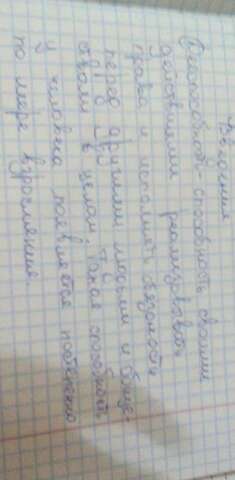 Дееспособность - способность своими
действиями реализовывать
права и исполнять обязности
перед другими людьми и обще-
ством в целом. Такая способность
у человека появляется постепенно
по мере взросления.